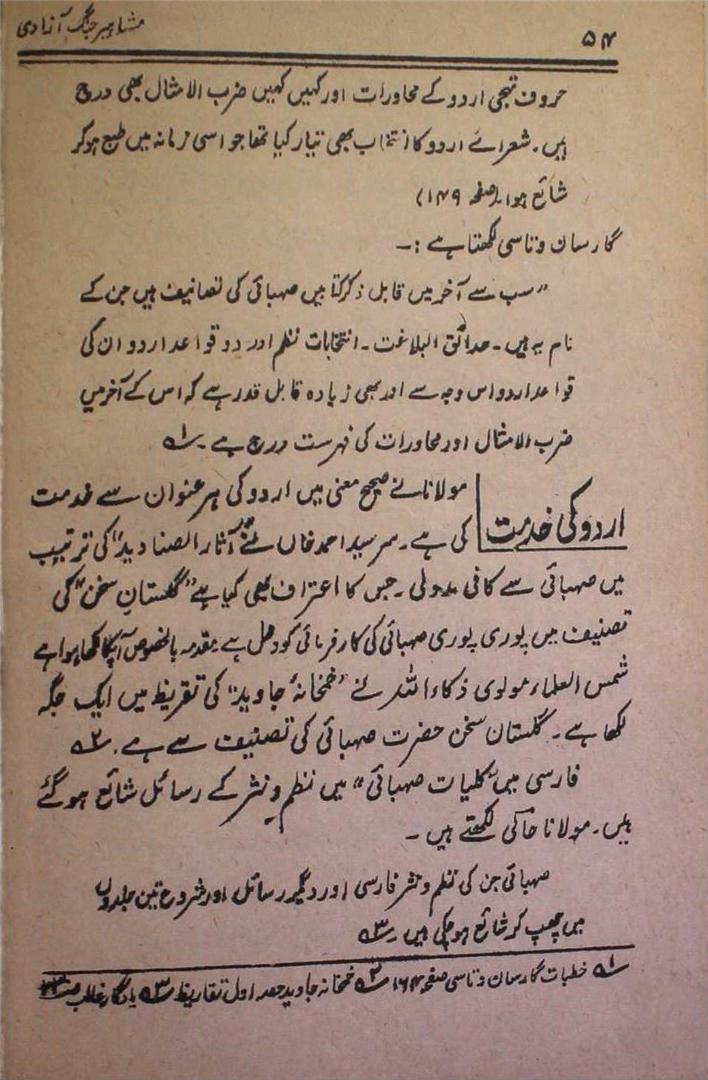 ۵۴
مشاہیر جنگ آزادی
حروف تہجی اردو کے محاورات اور کہیں کہیں ضرب الامثال بھی درج
ہیں۔ شعرائے اردو کا انتخاب بھی تیار کیا تھا جو اسی زمانہ میں طبع ہو کر
شائع ہوا۔ (صفحہ ۱۴۹)
گارسان وتاسی لکھتا ہے :۔
"سب سے آخر میں قابل ذکر کتابیں صہبائی کی تصانیف ہیں جن کے
نام یہ ہیں۔ حدائق البلاغت۔ انتخابات نظم اور دو قواعد اردو ان کی
قواعد اردو اس وجہ سے اور بھی زیادہ قابل قدر ہے کہ اس کے آخر میں
ضرب الامثال اور محاورات کی فہرست درج ہے۔ ؎۱
اردو کی خدمت
مولانا نے صحیح معنی میں اردو کی ہر عنوان سے خدمت
کی ہے۔ سر سید احمد خاں نے آثار الصنادید" کی ترتیب
میں صہبائی سے کافی مدد لی۔ جس کا اعتراف بھی کیا ہے "گلستان سخن" کی
تصنیف میں پوری پوری صہبائی کی کارفرمائی کو دخل ہے مقدمہ بالخصوص آپکا لکھا ہوا ہے
شمس العلماء مولوی ذکاء اللہ نے "خمخانۂ جاوید" کی تقریظ میں ایک جگہ
لکھا ہے۔ گلستان سخن حضرت صہبائی کی تصنیف سے ہے۔ ؎۲
فارسی میں "کلیات صہبائی" میں نظم و نثر کے رسائل شائع ہو گئے
ہیں۔ مولانا حالی لکھتے ہیں۔
صہبائی جن کی نظم و نثر فارسی اور دیگر رسائل اور شروع تین جلدوں
میں چھپ کر شائع ہو چکی ہیں۔ ؎۳
؎۱ خطبات گارسان وتاسی صفحہ ۱۶۴ ؎۲ خمخانہ جاوید حصہ اول تقاریظ ؎۳ یادگار غالب